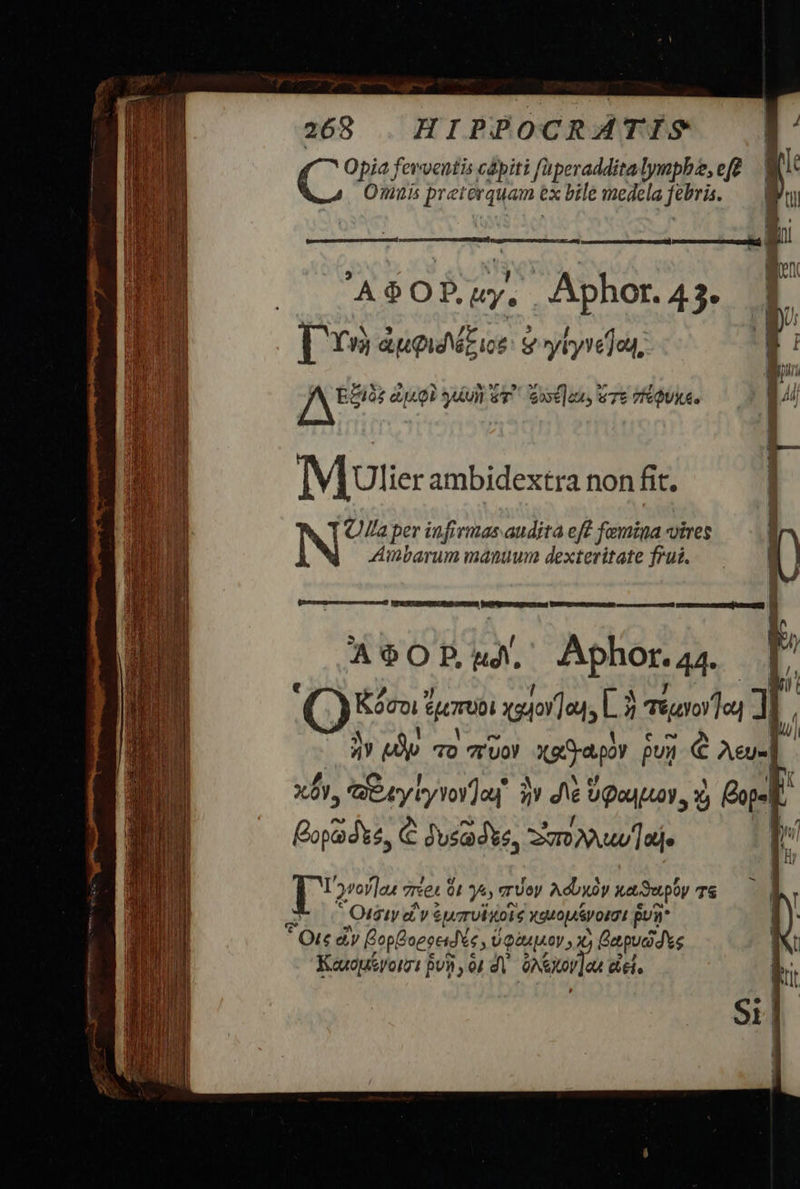 268 HIPPOCRATIS
COpia ferventis cápiti superaddita lymphæ, est
Omnis præterquam ex bile medela febris.
ἈΦΟΡ. μγ. Aphor. 43.
ΓΥνὴ ἀμφιδέξιος οὐ γίγνεται,
ΔΕξιὸς ἀμφὶ γυνὴ ἔτ'
MUlier ambidextra non fit.
NUlla per infirmas audita est fœmina vires
Ambarum manuum dexteritate frui.
ἈΦΟΡ. μδ. Aphor. 44.
ὉΚόσοι ἔμπυοι καίονται, [ ἢ τέμνονται ]
ἢν μὲν τὸ πῦον καθαρὸν ῥυῇ & λευ-
κόν, περιγίγνονται· ἢν δὲ ὕφαιμον, καὶ βορ-
βορῶδες, & δυσῶδες, ἀπόλλυνται.
ΓΊγνονται πέρι οἵ γε, πῦον λδυκὸν καθαρόν τε
Οἷσιν ἂν ἐμπυϊκοῖς καιομένοισι ῥυῇ·
Οἷς ἂν βορβοροειδὲς, ὕφαιμον, καὶ βαρυῶδες
Καιομένοισι ῥυῇ, οἱ δ' ὀλέκονται ἀεί.
Si